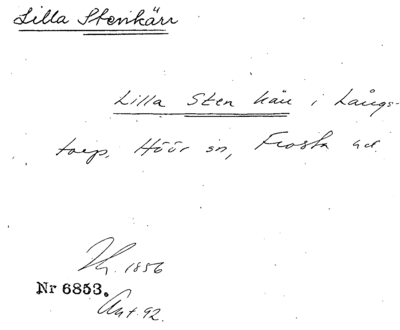 Lilla Stenkärr
Lilla Sten kärr i Långs-
torp, Höör sn, Frosta hd.
Th. 1856
Nr 6853.
Ant. 92.